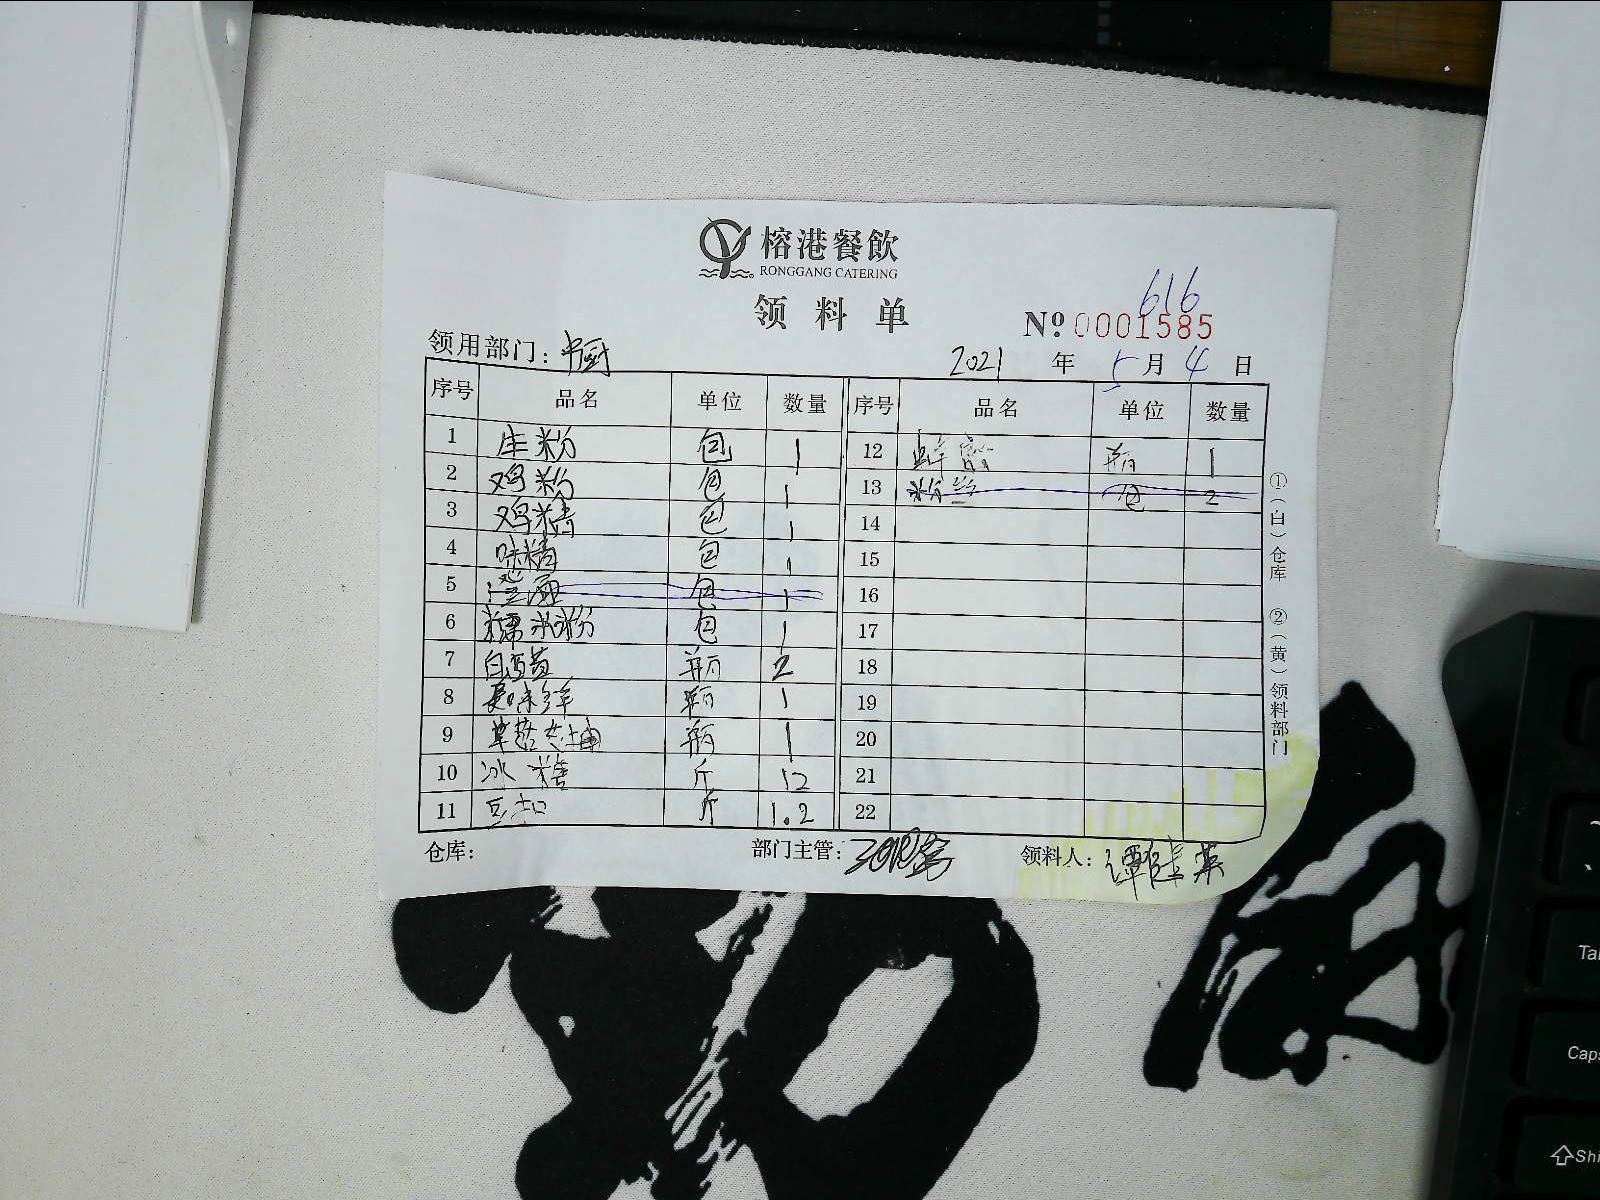 榕港餐飲
RONGGANG CATERING
领料单
616
№ 0001585
领用部门：中厨
2021年5月4日
序号 品名 单位 数量 序号 品名 单位 数量
1 生粉 包 1 12 蜂蜜 瓶 1
2 鸡粉 包 1 13 粉丝 包 2
3 鸡精 包 1 14
4 味精 包 1 15
5 包 1 16
6 糯米粉 包 1 17
7 白醋 瓶 2 18
8 美味鲜 瓶 1 19
9 草菇老抽 瓶 1 20
10 冰糖 斤 12 21
11 斤 1.2 22
①（白）仓库 ②（黄）领料部门
仓库： 部门主管： 领料人：
Tab
Caps
Shi